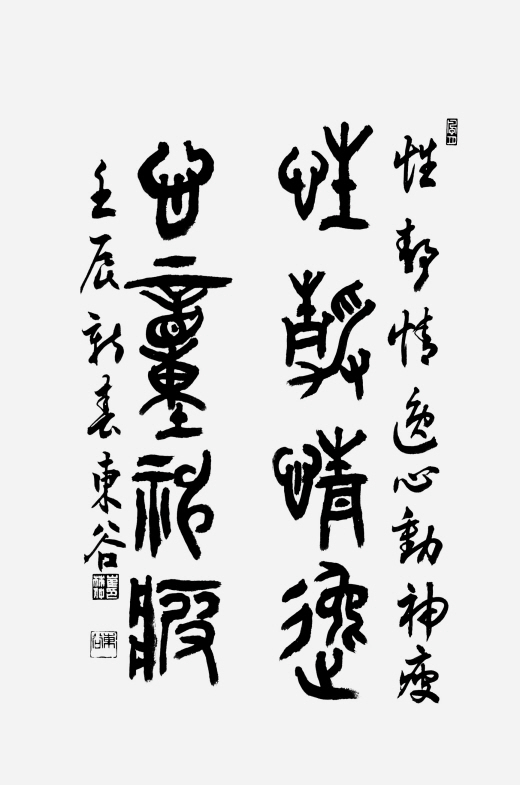 性靜情逸心動神疲
性靜情逸
心動神疲
壬辰新春東谷
東谷